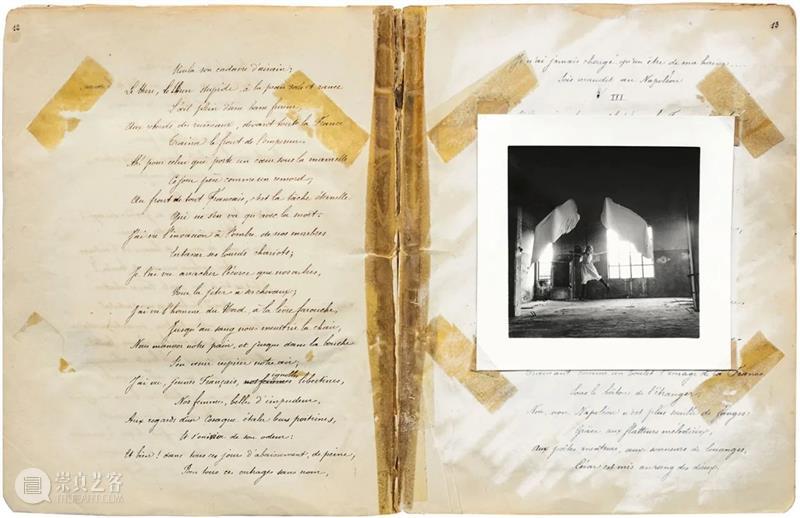 12
Voilà son cadavre d'airain;
Le Hun, le Hun stupide, à la peau sale et rance
L'œil plein d'une basse fureur
Aux rebords des ruisseaux, devant toute la France
Traîna le front de l'empereur.
Ah! pour celui qui porte un cœur sous la mamelle
Ce jour pèse comme un remord;
Au front de tout Français, c'est la tâche éternelle
Qui ne s'en va qu'avec la mort.
J'ai vu l'invasion à l'ombre de nos marbres
Entasser ses lourds chariots;
Je l'ai vu arracher l'écorce de nos arbres,
Pour la jeter à ses chevaux;
J'ai vu l'homme du Nord, à la lèvre farouche,
Jusqu'au sang nous meurtrir la chair,
Nous manger notre pain, et jusque dans la bouche
S'en venir respirer notre air;
J'ai vu, jeunes Français, ignobles libertines,
Nos femmes, belles d'impudeur,
Aux regards d'un Cosaque étaler leurs poitrines,
Et s'enivrer de son odeur:
Et bien! dans tous ces jours d'abaissement, de peine,
Pour tous ces outrages sans nom,
13
Je n'ai jamais chargé qu'un être de ma haine....
Sois maudit ou Napoléon!
III.
Traînant comme un boulet l'image de la France
Sous le bâton de l'étranger.
Non, non Napoléon n'est plus souillé de fanges:
Grâce aux flatteurs mélodieux,
Aux poètes menteurs, aux sonneurs de louanges,
César est mis au rang des dieux.
崇真艺客
TRUEART.COM